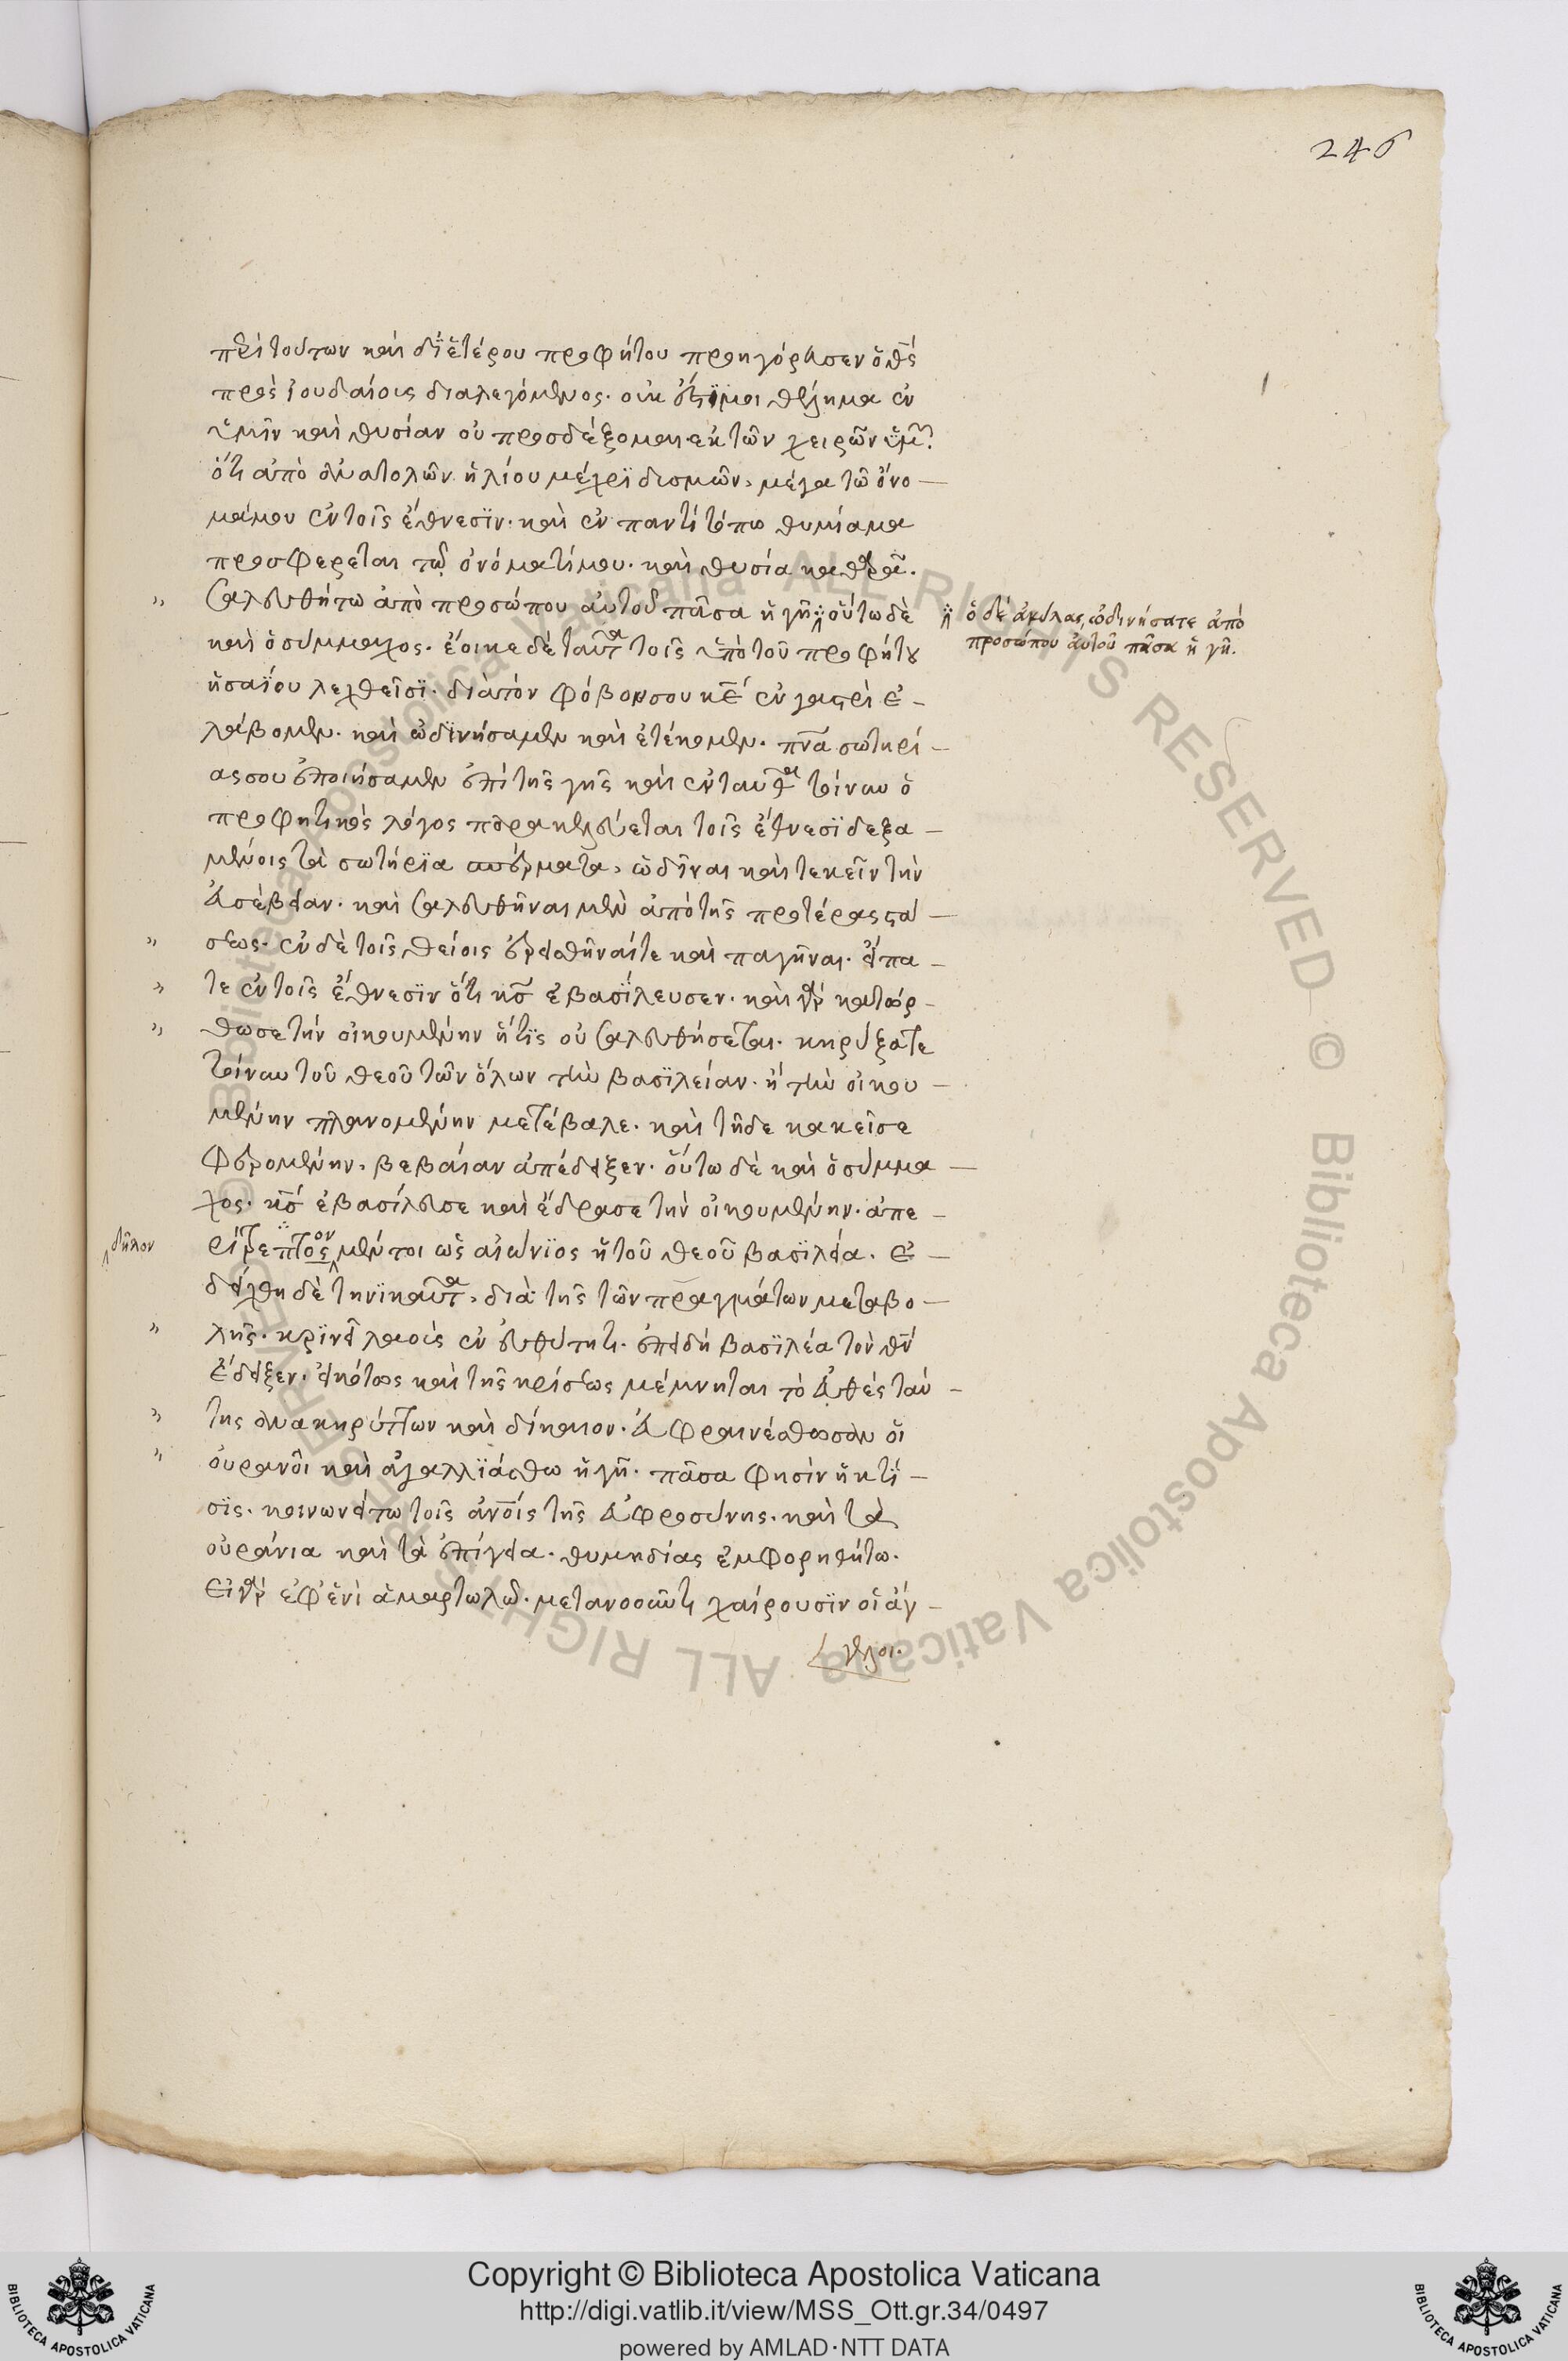 246
περὶ τούτων καὶ δι' ἑτέρου προφήτου προηγόρευσεν ὁ θς
πρὸς ἰουδαίοις διαλεγόμενος. οὐκ ἔστι μοι θέλημα ἐν
ὑμῖν καὶ θυσίαν οὐ προσδέξομαι ἐκ τῶν χειρῶν ὑμῶν.
ὅτι ἀπὸ ἀνατολῶν ἡλίου μέχρϊ δισμῶν, μέγα τῶ ὄνο –
μά μου ἐν τοῖς ἔθνεσϊν. καὶ ἐν παντὶ τόπω θυμίαμα
προσφερεται τῷ ὀνόματί μου. καὶ θυσία καθαρά.
" Σαλευθήτω ἀπὸ προσώπου αὐτοῦ πᾶσα ἡ γῆ οὕτω δὲ
ὁ δέ ἀκύλας, ὠδινήσατε ἀπὸ
προσώπου αὐτοῦ πᾶσα ἡ γῆ.
καὶ ὁ σύμμαχος. ἔοικε δὲ ταῦτα τοῖς ὑπὸ τοῦ προφήτου
ἡσαΐου λεχθεῖσϊ. διὰ τὸν φόβον σου κε ἐν γαστρὶ ἐ –
λάβομεν. καὶ ὠδϊνήσαμεν καὶ ἐτέκομεν. πνα σωτηρί –
ας σου ἐποιήσαμεν ἐπὶ τῆς γῆς καὶ ἐνταῦθα τοίνυν ὁ
προφητικὸς λόγος παρακελεύεται τοῖς ἔθνεσϊ δεξα –
μένοις τὰ σωτήρϊα σπέρματα, ὠδῖναι καὶ τεκεῖν τὴν
εὐσέβειαν. καὶ σαλευθῆναι μὲν ἀπὸ τῆς προτέρας στά –
" σεως. ἐν δὲ τοῖς θείοις ἐρεισθῆναί τε καὶ παγῆναι. εἴπα –
" τε ἐν τοῖς ἔθνεσϊν ὅτι κς ἐβασΐλευσεν. καὶ γὰρ κατώρ –
" θωσε τὴν οἰκουμένην ἥτϊς οὐ σαλευθήσεται. κηρύξατε
τοίνυν τοῦ θεοῦ τῶν ὅλων τὴν βασϊλείαν. ἢ τὴν οἰκου –
μένην πλανομένην μετέβαλε. καὶ τῆδε κακεῖσε
φερομένην, βεβαίαν ἀπέδειξεν. οὕτω δὲ καὶ ὁ σύμμα –
χος. κς ἐβασίλευσε καὶ ἕδρασε τὴν οἰκουμένην. ἀπε –
δῆλον
ρίτρεπτος ον μέντοι ὡς αἰώνϊος ἡ τοῦ θεοῦ βασϊλεία. ἐ –
δείχθη δὲ τηνϊκαῦτα, διὰ τῆς τῶν πραγμάτων μεταβο –
" λῆς. κρϊνεῖ λαοὺς ἐν εὐθύτητι. ἐπειδὴ βασϊλέα τὸν θν
ἔδειξεν. εἰκότως καὶ τῆς κρίσεως μέμνηται τὸ εὐθὲς ταύ –
" της ἀνακηρύττων καὶ δίκαιον. Εὐφραινέσθωσαν οἱ
" οὐρανοὶ καὶ ἀγαλλϊάσθω ἡ γῆ. πᾶσα φησὶν ἡ κτΐ –
σϊς. κοινωνείτω τοῖς ἀνοις τῆς εὐφροσύνης. καὶ τὰ
οὐράνια καὶ τὰ ἐπίγεια. θυμηδίας ἐμφορηθήτω.
Εἰ γὰρ ἐφ' ἑνὶ ἁμαρτωλῷ. μετανοοῦντι χαίρουσϊν οἱ ἀγ –
γελοι.
Copyright © Biblioteca Apostolica Vaticana
http://digi.vatlib.it/view/MSS_Ott.gr.34/0497
powered by AMLAD·NTT DATA
© Biblioteca Apostolica Vaticana ALL RIGHTS RESERVED © Biblioteca Apostolica Vaticana ALL RIGHTS RESERVED
BIBLIOTECA APOSTOLICA VATICANA
BIBLIOTECA APOSTOLICA VATICANA